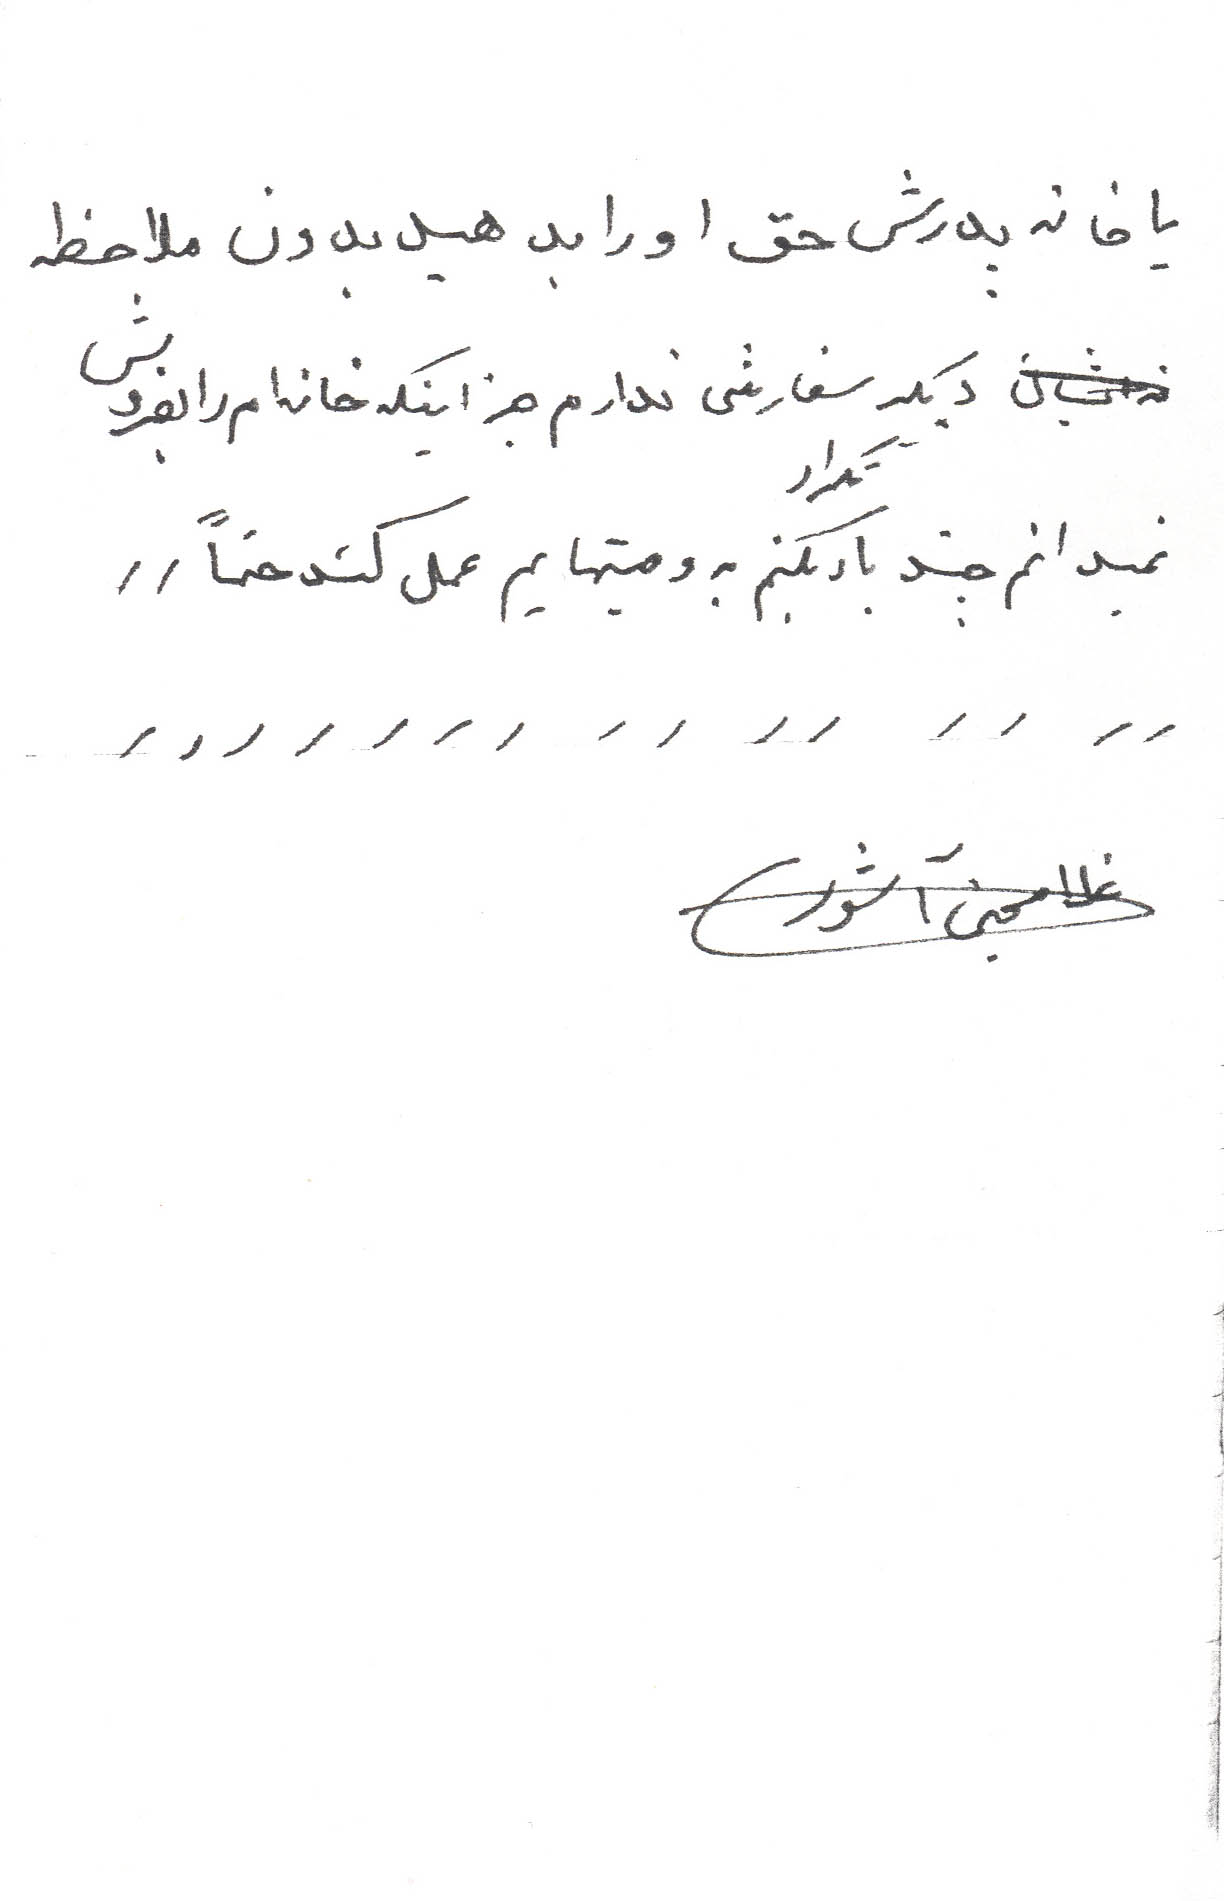 یا خانه پدرش حق او را بدهید بدون ملاحظه
دیگر سفارشی ندارم جز اینکه خانه ام را بفروش
نمیدانم چند بار تکرار بکنم به وصیتهایم عمل کنند حتماً //
غلامحسین آشوری